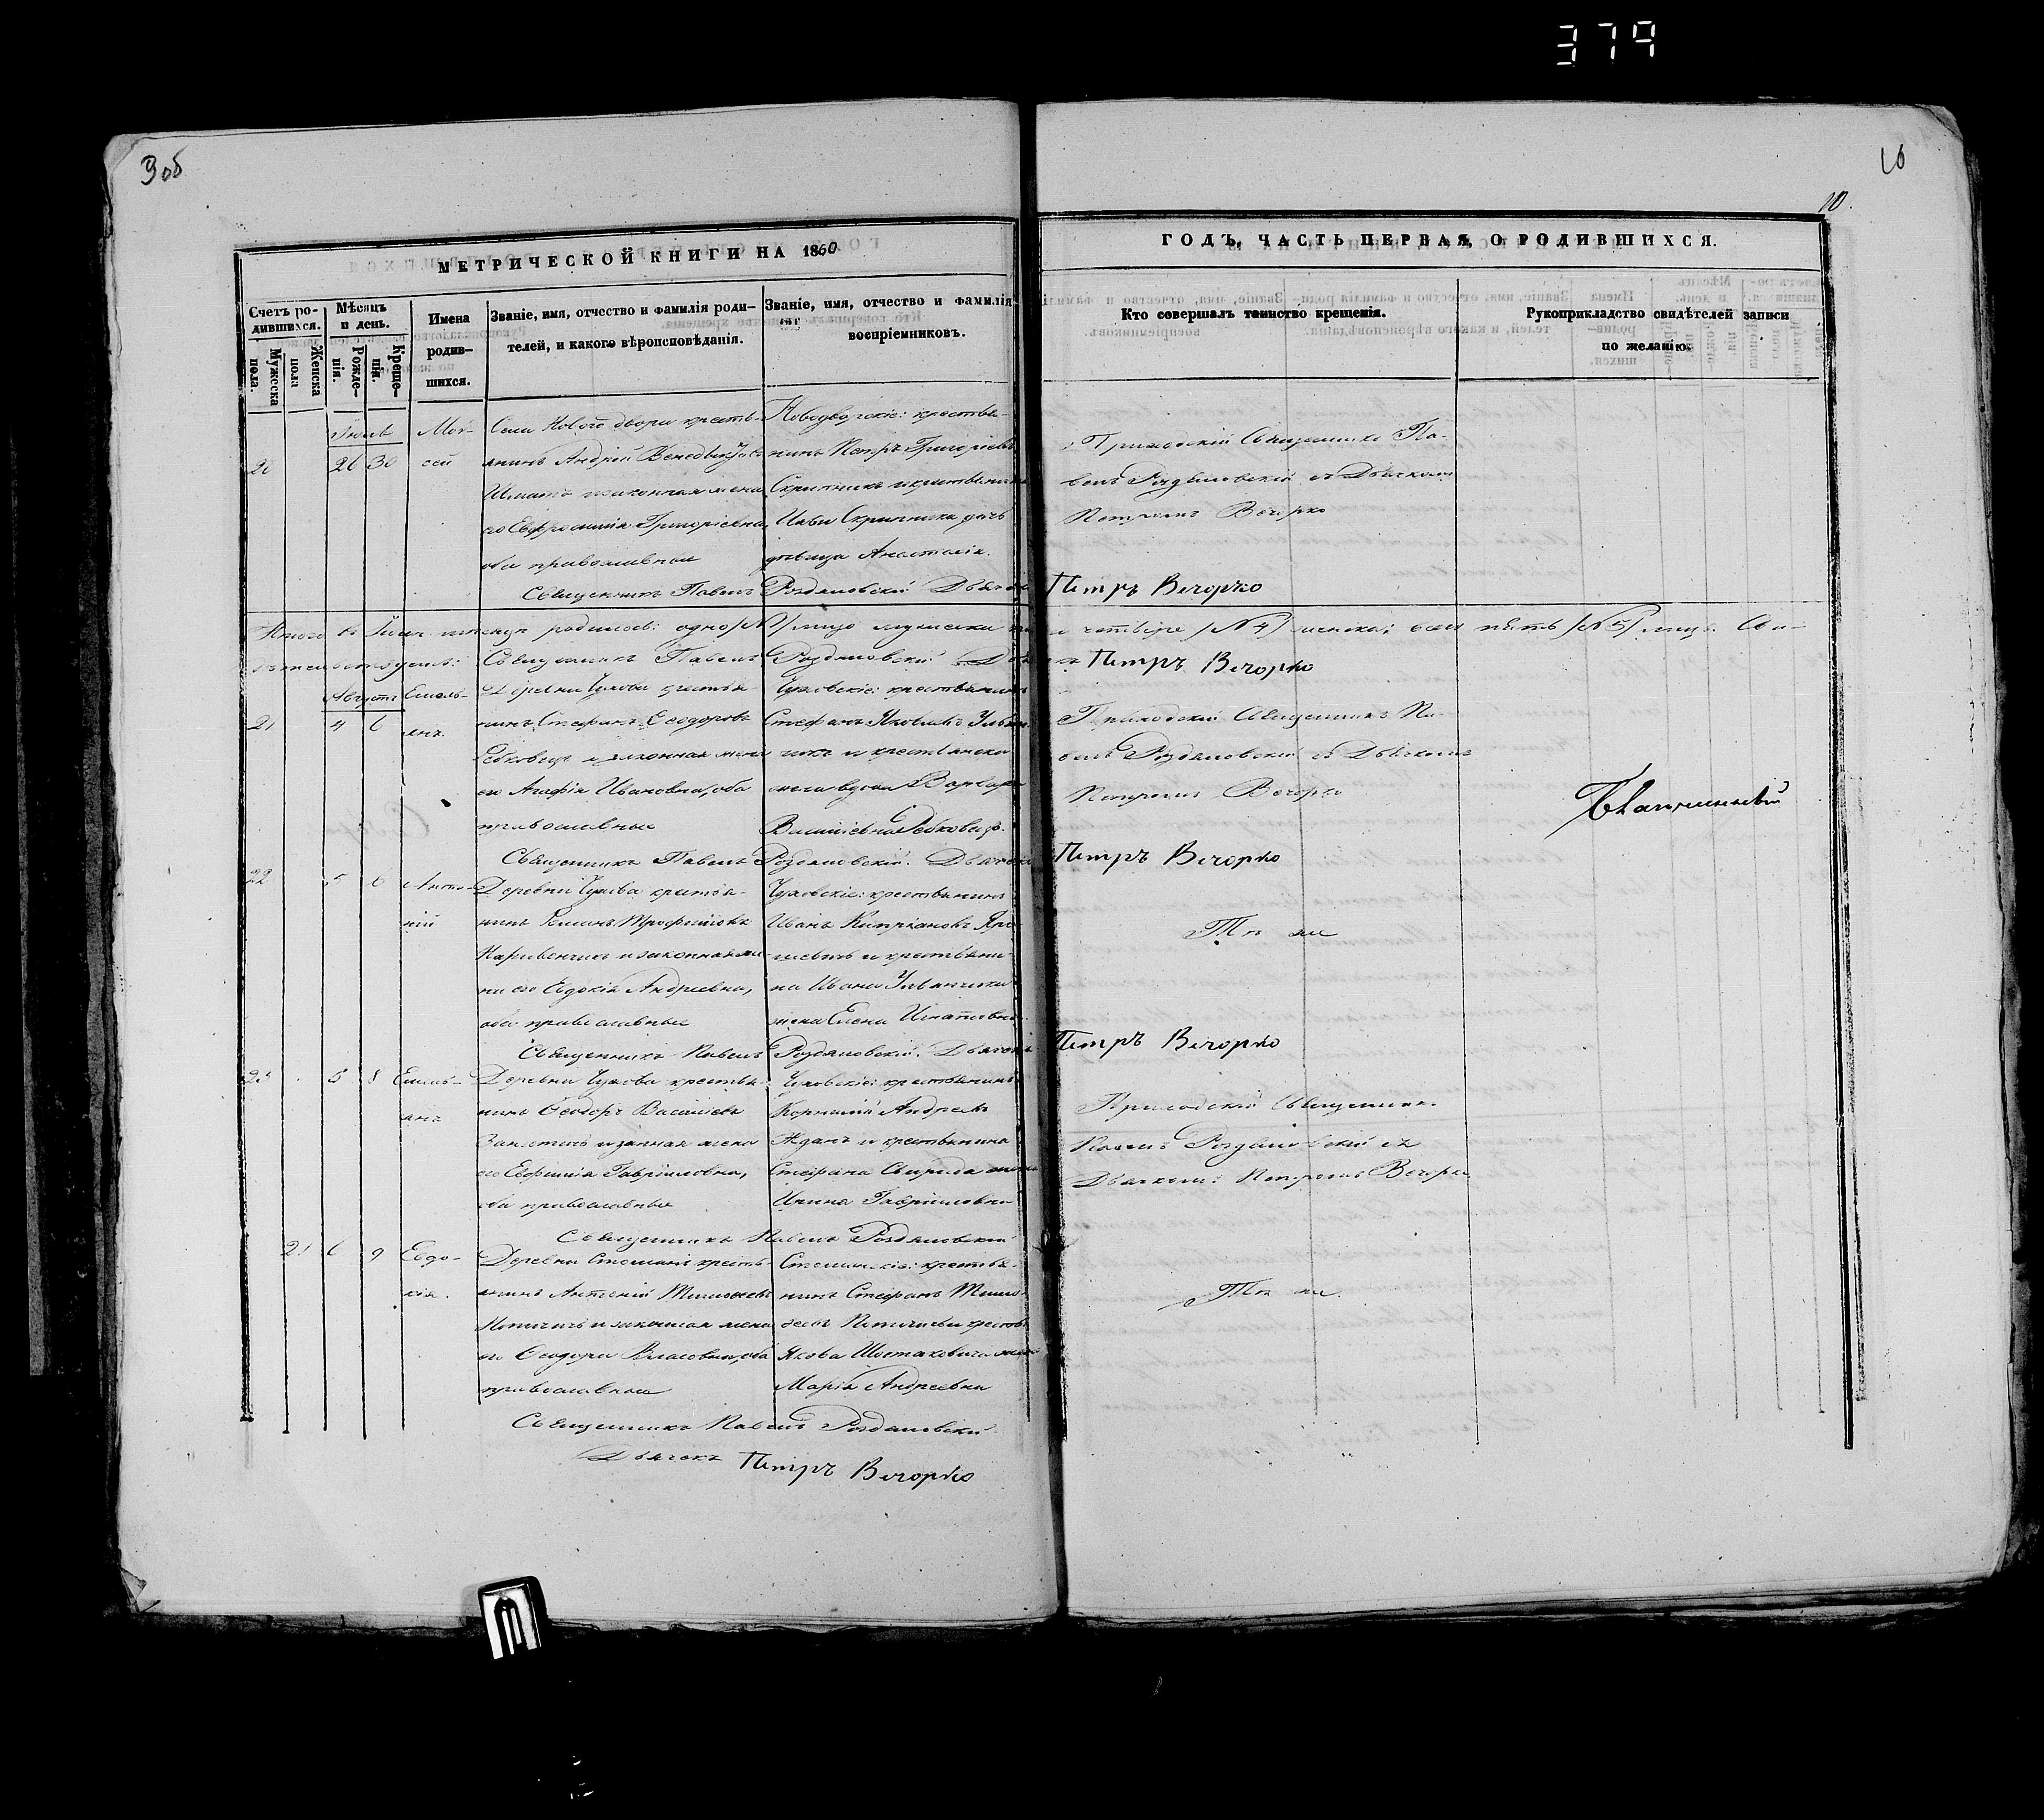 379
9 об
10
10.
МЕТРИЧЕСКОЙ КНИГИ НА 1860
ГОДЪ, ЧАСТЬ ПЕРВАЯ, О РОДИВШИХСЯ.
Счетъ родившихся.
Мужеска пола.
Женска пола
Мѣсяцъ и день.
Рожденія.
Крещенія.
Имена родившихся.
Званіе, имя, отчество и фамилія родителей, и какого вѣроисповѣданія.
Званіе, имя, отчество и фамилія воспріемниковъ.
Кто совершалъ таинство крещенія.
Рукоприкладство свидѣтелей записи по желанію.
Июль
20 26 30 Мои-
сей
Села Нового двора кресть-
янинъ Андрей Венедиктовъ
Игнатъ и законная жена
его Евфросинія Григоріевна,
оба православные
Новодворскіе: крестья-
нинъ Петръ Григоріевъ
Скрипникъ и крестьянина
Ивана Скрипника дочь
девица Анастасія.
Приходскій Священникъ Па-
велъ Роздяловскій съ Дьячкомъ
Петромъ Вечорко
Священникъ Павелъ Роздяловскій Дьячокъ Петръ Вечорко
Итого въ Іюлѣ месяце родилось: одно /№ 1/ лицо мужеска и четыре /№ 4/ женска; всего пять /№ 5/ лицъ. Сви-
детельствуемъ: Священникъ Павелъ Роздяловскій Дьячокъ Петръ Вечорко
Августъ
21 4 6 Емель-
янъ
Деревни Чухова крестья-
нинъ Стефанъ Ѳеодоровъ
Редковецъ и законная жена
его Агафія Ивановна, оба
православные
Чуховскіе: крестьянинъ
Стефанъ Яковлевъ Ульян-
чикъ и крестьянска
жена вдова Варвара
Василіевна Редковецъ.
Приходскій Священникъ Па-
велъ Роздяловскій съ Дьячкомъ
Петромъ Вечорко
Священникъ Павелъ Роздяловскій. Дьячокъ Петръ Вечорко
22 5 6 Анто-
ній
Деревни Чухова крестья-
нинъ Романъ Трофимовъ
и законная же-
на его Евдокія Андреевна,
оба православные
Чуховскіе: крестьянинъ
Иванъ Кипріановъ
и крестьяни-
на Ивана Ульянчика
жена Елена Игнатьевна.
Тѣ же
Священникъ Павелъ Роздяловскій. Дьячокъ Петръ Вечорко
23 5 8 Емель-
янъ
Деревни Чухова крестья-
нинъ Ѳеодоръ Василіевъ
и законная жена
его Евфимія Гавріиловна,
оба православные
Чуховскіе: крестьянинъ
Корнилій Андреевъ
Жданъ и крестьянина
Стефана Свирида жена
Ирина Гавріиловна
Приходскій Священникъ
Павелъ Роздяловскій съ
Дьячкомъ Петромъ Вечорко
Священникъ Павелъ Роздяловскій
21 6 9 Евдо-
кія.
Деревни Стошанъ кресть-
янинъ Антоній Тимоѳеевъ
и законная жена
его Ѳеодора Власовна, оба
православные
Стошанскіе: крестья-
нинъ Стефанъ Тимо-
ѳеевъ и крестьян.
Якова Шостаковича жена
Марія Андреевна
Тѣ же.
Священникъ Павелъ Роздяловскій
Дьячокъ Петръ Вечорко